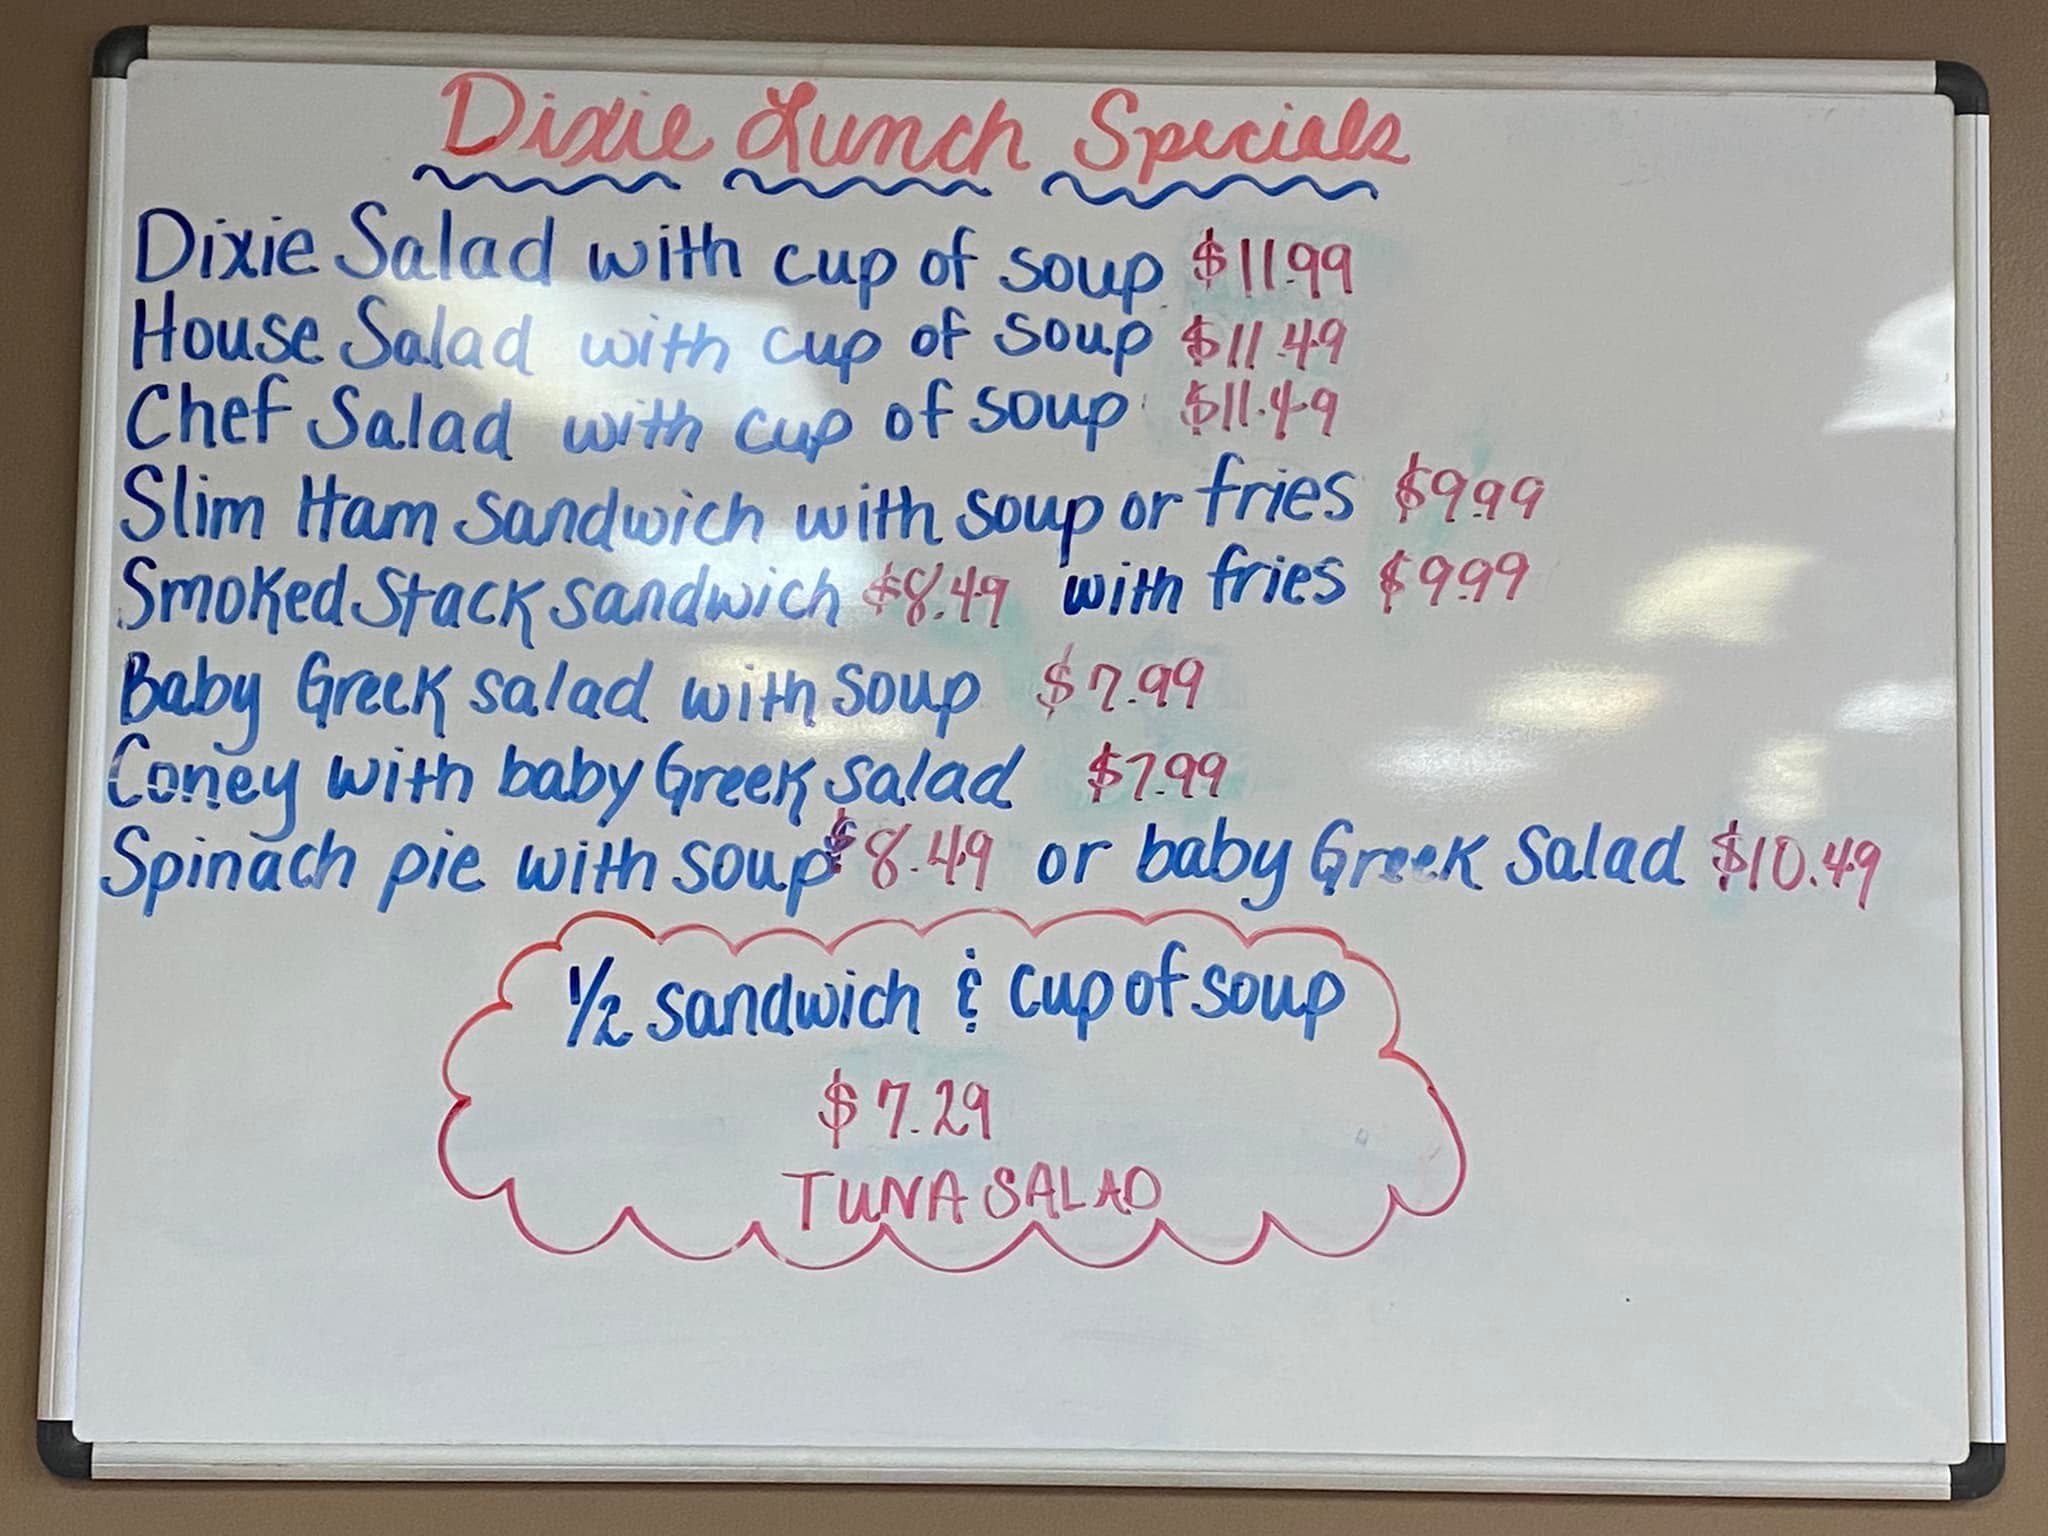 Dixie Lunch Specials
Dixie Salad with cup of soup $11.99
House Salad with cup of soup $11.49
Chef Salad with cup of soup $11.49
Slim Ham sandwich with soup or fries $9.99
Smoked Stack sandwich $8.49 with fries $9.99
Baby Greek salad with soup $7.99
Coney with baby Greek salad $7.99
Spinach pie with soup $8.49 or baby Greek salad $10.49
1/2 sandwich & cup of soup
$7.29
TUNA SALAD